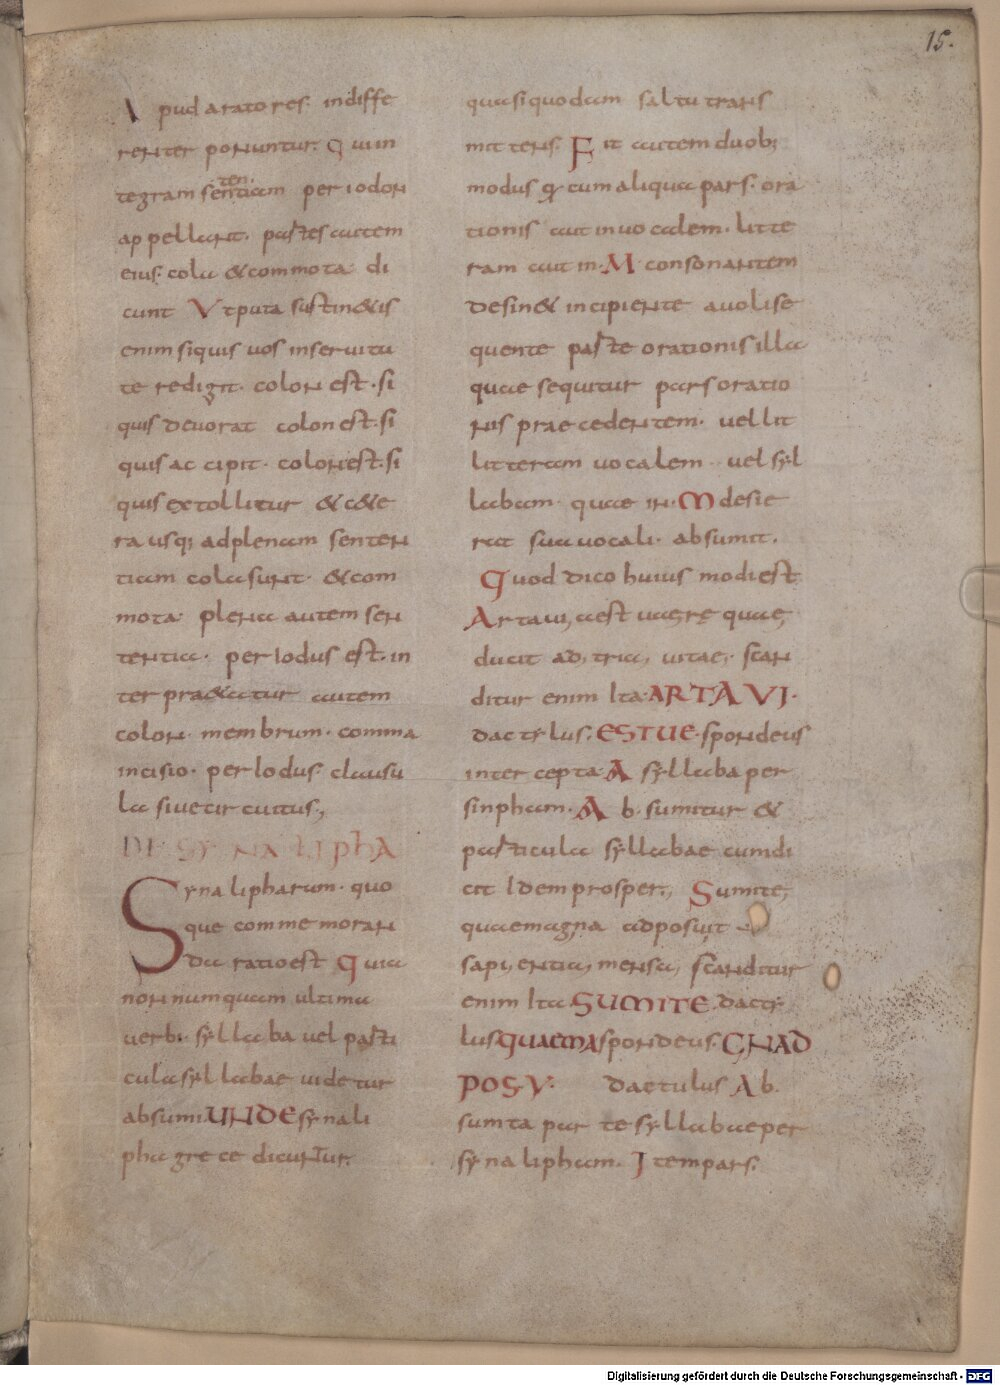 15.
Apud aratores. indiffe
renter ponuntur. Qui in
tegram sententiam periodon
ten.
appellant. partes autem
eius. cola & commota di
cunt Utputa sustin&is
enim siquis vos inservitu
te redigit. colon est. si
quis devorat colon est. si
quis accipit. colon est. si
quis extollitur & c&e
ra usq; adplenam senten
tiam cola sunt. & com
mota. plena autem sen
tentia. periodus est. in
terpra&atur autem
colon. membrum. comma
incisio. periodus. clausu
la sive circuitus,
DE SYNALIPHA
Synalipharum. quo
que commemoran
da ratio est Quia
nonnumquam ultima
verbi. syllaba vel parti
cula syllabae videtur
absumi. UNDE synali
pha grece dicuntur.
quasi quodam saltu trans
mittens. Fit autem duob;
modus qr cum aliqua pars. ora
tionis aut in vocalem. litte
ram aut in. M. consonantem
desin& incipiente avoli se
quente parte orationis illa
quae sequitur pars oratio
nis praecedentem. vel lit
litteram vocalem. vel syl
labam. quae in. M desie
rat sua vocali. absumit.
Quod dico huius modi est
Arta vi, a est vagrę quae,
ducit ad, tria, vitae, scan
ditur enim Ita. ARTA VI.
dactylus. EST VE. spondeus
intercepta. A syllaba per
sinpham. A b. sumitur &
particula syllabae cum di
cit Idem prosper, Sumite,
quae magna adposuit
sapi, entia, mensa, scanditur
enim Ita SUMITE. dacty
lus QUAE MA spondeus. GNAD
POSU. dactulus Ab.
sumta parte syllabae per
synalipham. Item pars.
Digitalisierung gefördert durch die Deutsche Forschungsgemeinschaft - DFG